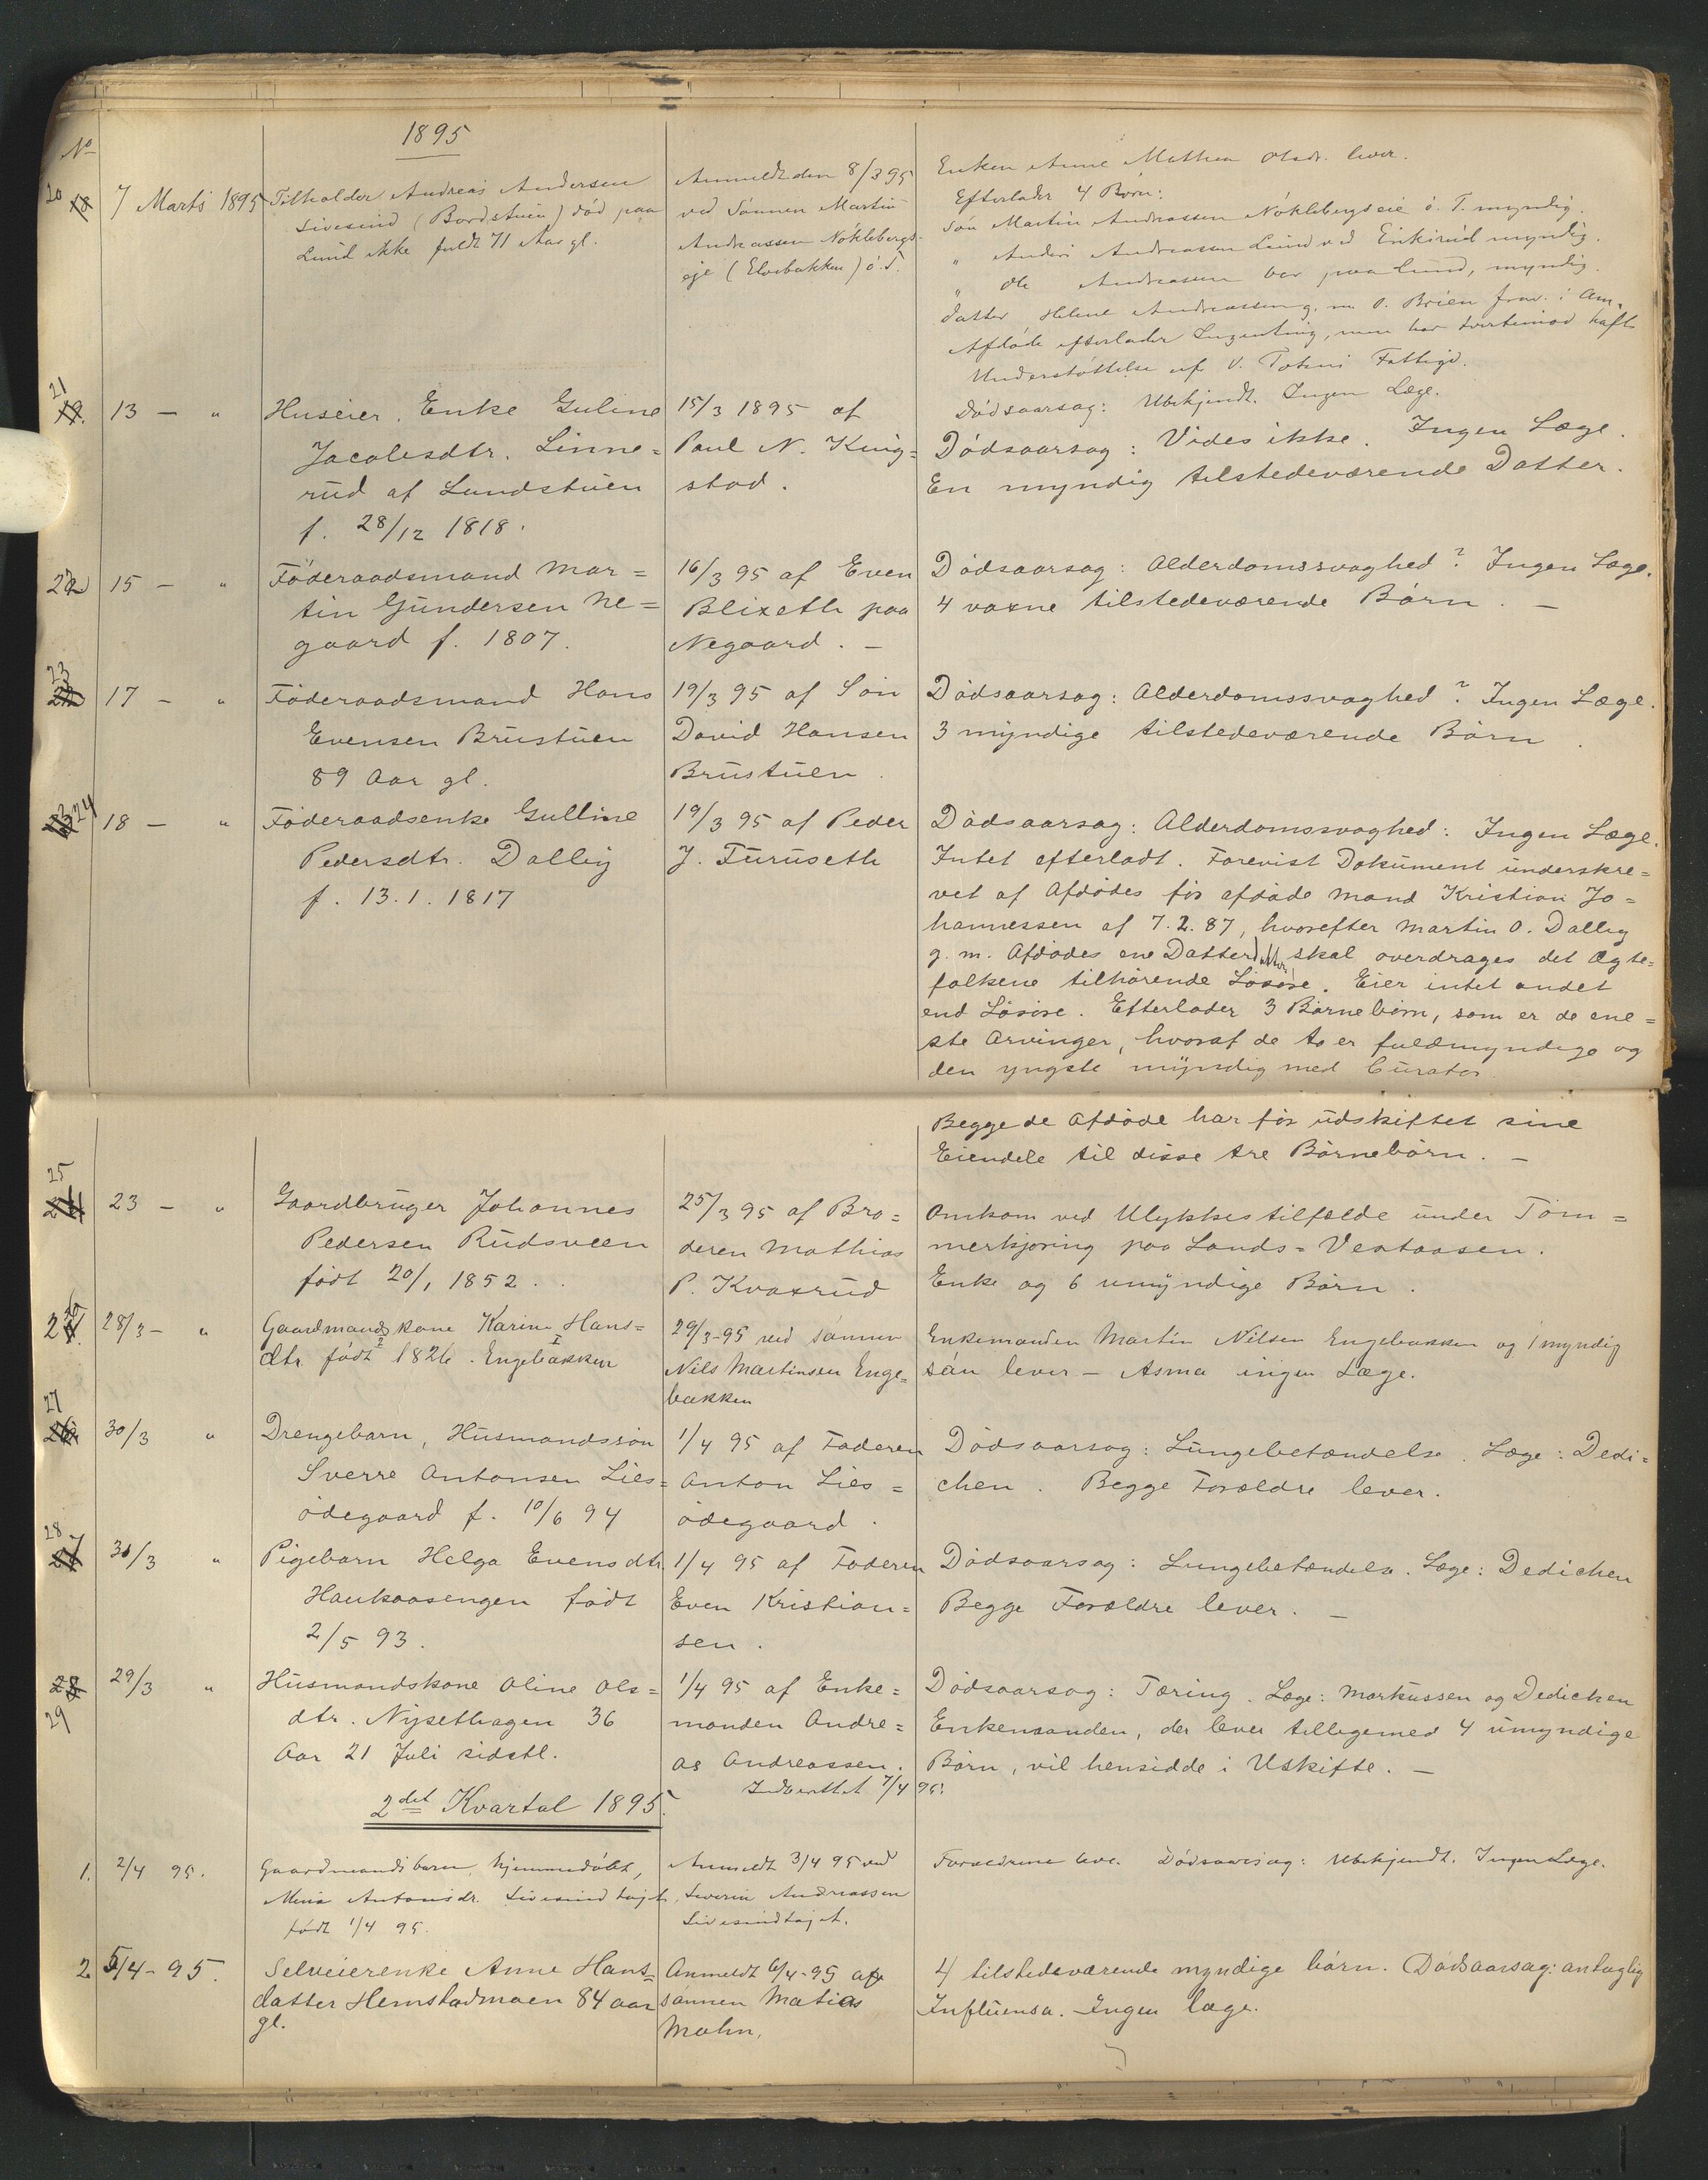 1895
No
20 18 7 Marts 1895 Tilholder Andreas Andersen
Sivesind (Bordstuen) död paa
Lund ikke fuldt 71 Aar gl.
Anmeldt den 8/3 95
ved Sönnen Martin
Andreassen Nöklebergs-
eje (Elvebakken) ö. T.
Enken Anne Mathea Olsdr. lever.
Efterlader 4 Börn:
Sön Martin Andreassen Nöklebergseie ö. T. myndig.
" Anders Andreassen Lund ved Einkirud myndig.
" Ole Andreassen bor paa Lund, myndig.
datter Helene Andreassen g. m. O. Brien frav. i Am.
Afdöde efterlader Ingenting, men har tvertimod haft
Understöttelse af V. Totens Fattigv.
Dödsaarsag: Ubekjendt. Ingen Læge.
21 19. 13 — " Huseier. Enke Guline
Jacobsdtr. Linne=
rud af Lundstuen
f. 28/12 1818.
15/3 1895 af
Paul N. King=
stad.
Dödsaarsag: Vides ikke. Ingen Læge.
En myndig tilstedeværende Datter.
22 15 — " Föderaadsmand Mar=
tin Gundersen Ne=
gaard f. 1807.
16/3 95 af Even
Blixeth paa
Negaard. —
Dödsaarsag: Alderdomssvaghed? Ingen Læge.
4 voxne tilstedeværende Börn. —
23 17 — " Föderaadsmand Hans
Evensen Brustuen
89 Aar gl.
19/3 95 af Sön
David Hansen
Brustuen.
Dödsaarsag: Alderdomssvaghed? Ingen Læge.
3 myndige tilstedeværende Börn.
24 18 — " Föderaadsenke Gulline
Pedersdtr. Dallig
f. 13.1.1817
19/3 95 af Peder
J. Furuseth
Dödsaarsag: Alderdomssvaghed: Ingen Læge.
Intet efterladt. Forevist Dokument underskre=
vet af Afdödes för afdöde Mand Kristian Jo=
hannessen af 7.2.87, hvorefter Martin O. Dallig
g. m. Afdödes ene Datterdatter skal overdrages det Ægte=
folkene tilhörende Lösöre. Eier intet andet
end Lösöre. Efterlader 3 Börnebörn, som er de ene=
ste Arvinger, hvoraf de to er fuldmyndige og
den yngste myndig med Curator.
Begge de Afdöde har för udskiftet sine
Eiendele til disse tre Börnebörn. —
25 24 23 — " Gaardbruger Johannes
Pedersen Rudsveen
födt 20/1 1852.
25/3 95 af Bro=
deren Mathias
P. Kvaxrud
Omkom ved Ulykkestilfælde under Töm=
merkjöring paa Lands=Vestaasen.
Enke og 6 umyndige Börn.
26 28/3 — " Gaardmandskone Karine Hans=
dtr. födt 1826. Engebakken
29/3-95 ved sönnen
Nils Martinsen Enge=
bakken
Enkemanden Martin Nilsen Engebakken og 1 myndig
sön lever — Asma ingen Læge.
27 26 30/3 " Drengebarn, Husmandssön
Sverre Antonsen Lies=
ödegaard f. 10/6 94
1/4 95 af Faderen
Anton Lies=
ödegaard.
Dödsaarsag: Lungebetændelse. Læge: Dedi=
chen. Begge Forældre lever.
28 27 30/3 " Pigebarn Helga Evensdtr.
Haukaasengen födt
2/5 93.
1/4 95 af Faderen
Even Kristian=
sen.
Dödsaarsag: Lungebetændelse. Læge: Dedichen
Begge Forældre lever. —
28 29 29/3 " Husmandskone Oline Ols=
dtr. Nysethagen 36
Aar 21 Juli sidstl.
1/4 95 af Enke=
manden Andre=
as Andreassen.
Dödsaarsag: Tæring. Læge: Markussen og Dedichen
Enkemanden, der lever tilligemed 4 umyndige
Börn, vil hensidde i Uskifte. —
Indberettet 7/4 95.
2det Kvartal 1895.
1. 2/4 95. Gaardmandsbarn, hjemmedöbt,
Mina Antonsdr. Sivesindhaget
födt 1/4 95.
Anmeldt 3/4 95 ved
Severin Andreassen
Sivesindhaget.
Forældrene lever. Dödsaarsag: Ubekjendt. Ingen Læge.
2 5/4-95. Selveierenke Anne Hans=
datter Hemstadmoen 84 aar
gl.
Anmeldt 6/4-95 af
sönnen Matias
Mohn.
4 tilstedeværende myndige börn. Dödsaarsag: antaglig
Influensa. Ingen læge.